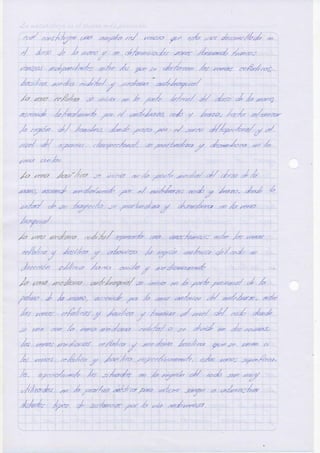 red constituyen una amplia red venosa que esta mas desarrollada en
el dorso de la mano y en determinadas zonas formando troncos
venosos independientes entre los que se destacan las venas cefálica,
basílica, mediana cubital y mediana antebraquial
La vena cefálica se inicia en la parte lateral del dorso de la mano,
asciende lateralmente por el antebrazo, codo y brazo, hasta alcanzar
la región del hombro, donde pasa por el surco deltopectoral y al
nivel del clavipectoral se profundiza y desemboca en la
vena axilar.
La vena basílica se inicia en la parte medial del dorso de la
mano, asciende medialmente por el antebrazo codo y brazo, donde la
mitad de su trayecto se profundiza y desemboca en la vena
braquial.
La vena mediana cubital representa una anastomosis entre las venas
cefálica y basílica y atraviesa la región anterior del codo en
dirección oblicua hacia arriba y medialmente
La vena mediana antebraquial se inicia en la parte proximal de la
palma de la mano, asciende por la cara anterior del antebrazo, entre
las venas cefálica y basílica y termina al nivel del codo donde
se une con la vena mediana cubital o se divide en dos ramas,
las venas medianas cefálica y mediana basílica que se unen a
las venas cefálica y basílica respectivamente, estas venas superficia-
les, especialmente las situadas en la región del codo son muy
utilizadas en la práctica médica para extraer sangre o administrar
distintos tipos de sustancias por la vía endovenosa